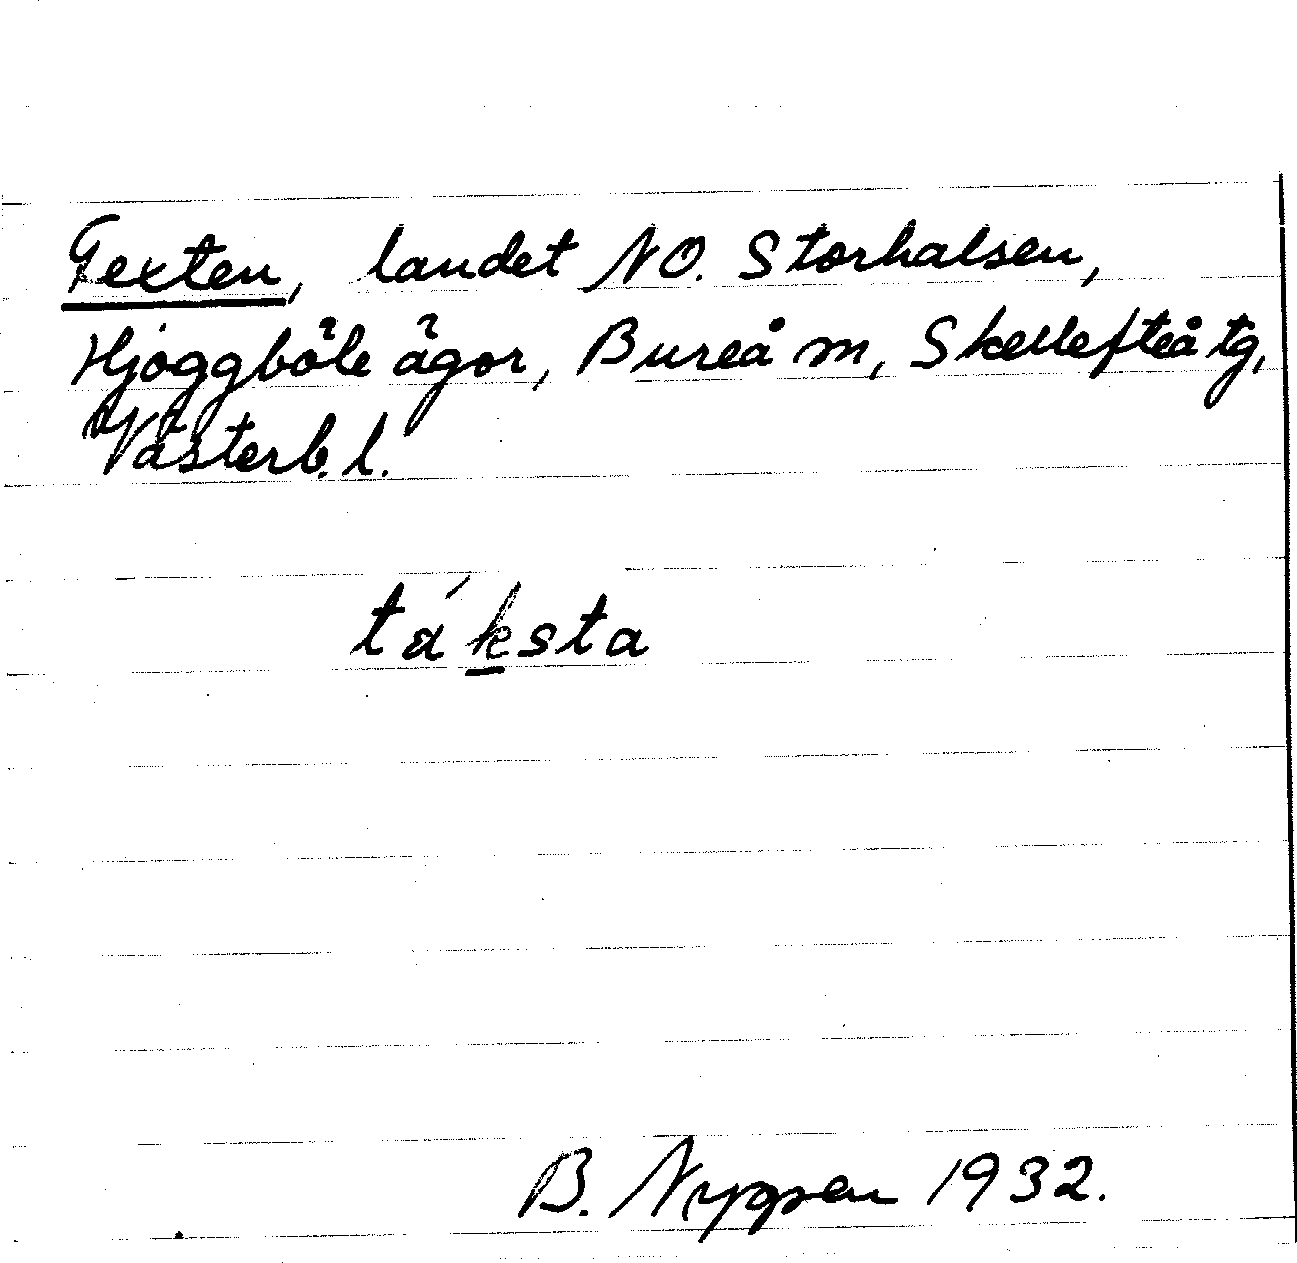 Texten, landet NO. Storhalsen,
Hjoggböle ägor, Bureå m, Skellefteå tg,
Västerb. l.
táksta
B. 1932.